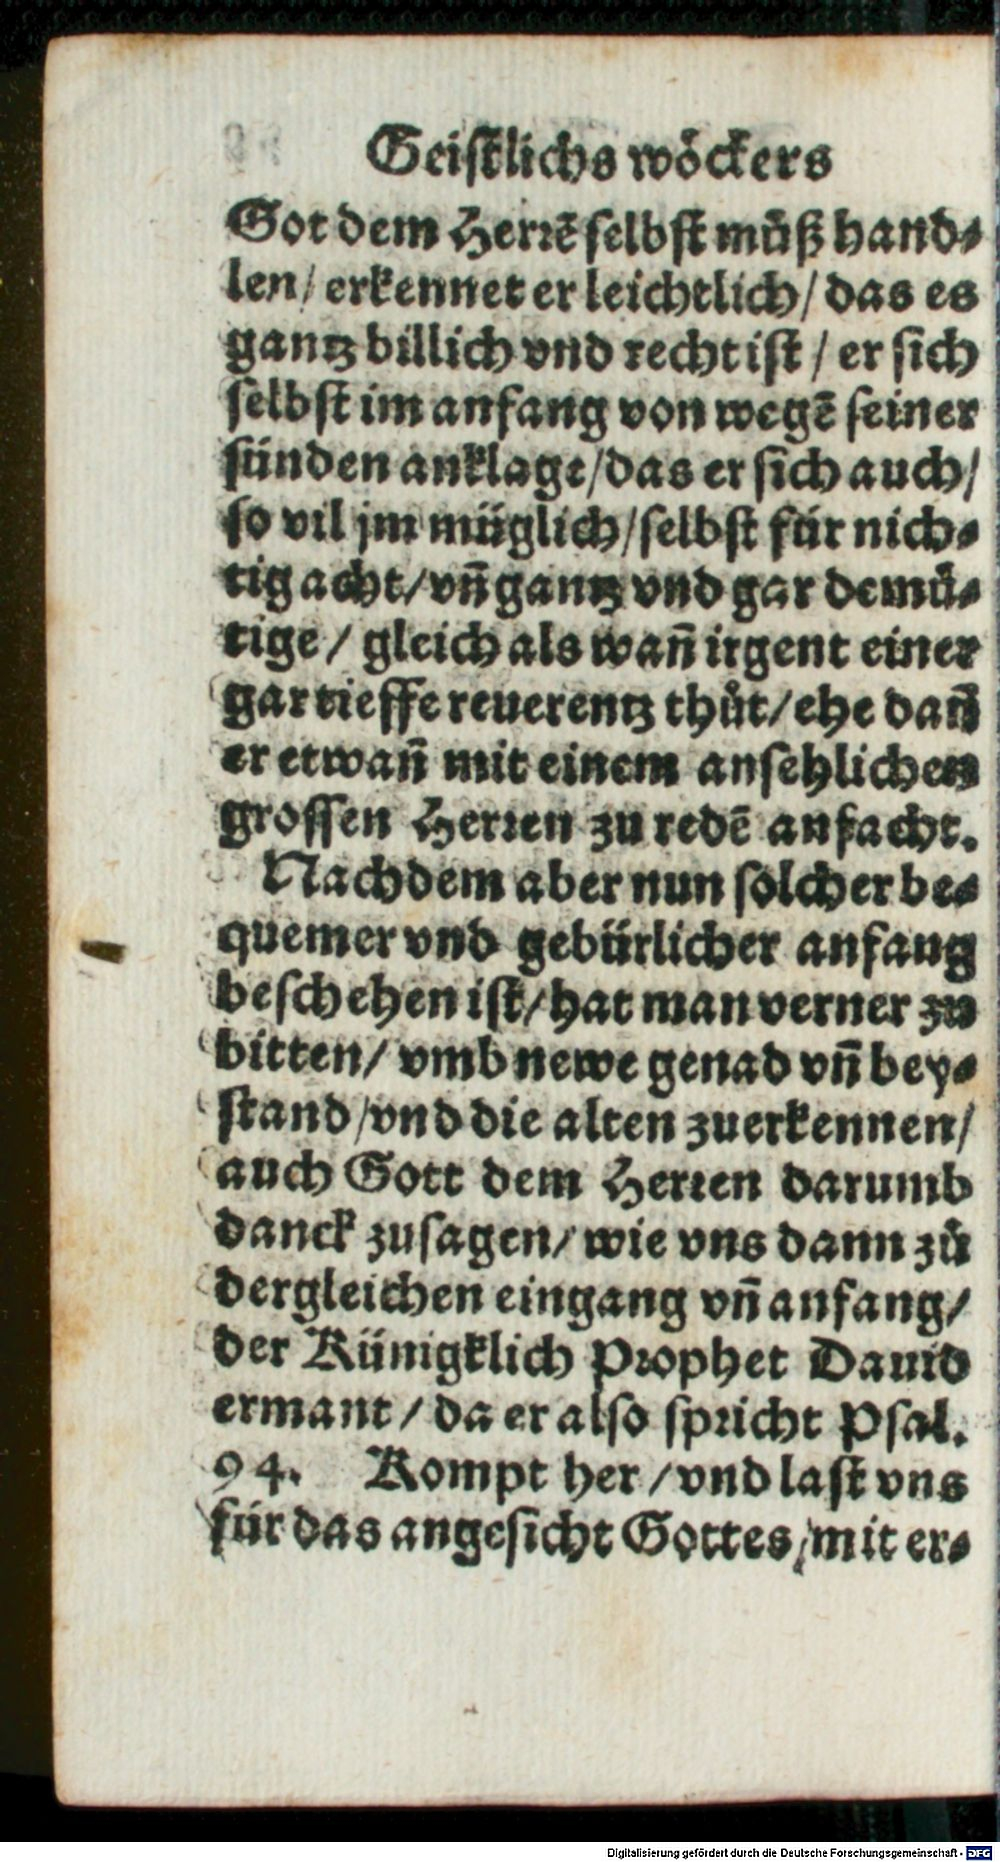 Geistlichs wöckers
Got dem Herrē selbst můß hand⸗
len/ erkennet er leichtlich/ das es
gantz billich vnd recht ist / er sich
selbst im anfang von wegē seiner
sünden anklage/das er sich auch/
so vil jm müglich/selbst für nich⸗
tig acht/vn̄ gantz vnd gar demü⸗
tige / gleich als wan̄ irgent einer
gar tieffe reuerentz thůt/ehe dan̄
er etwan̄ mit einem ansehlichen
grossen Herren zu redē anfacht.
Nachdem aber nun solcher be⸗
quemer vnd gebürlicher anfang
beschehen ist/hat man verner zu
bitten/ vmb newe genad vn̄ bey⸗
stand/vnd die alten zuerkennen/
auch Gott dem Herren darumb
danck zusagen/ wie vns dann zů
dergleichen eingang vn̄ anfang/
der Künigklich Prophet Dauid
ermant / da er also spricht Psal.
94. Kompt her /vnd last vns
für das angesicht Gottes/mit er⸗
Digitalisierung gefördert durch die Deutsche Forschungsgemeinschaft - DFG